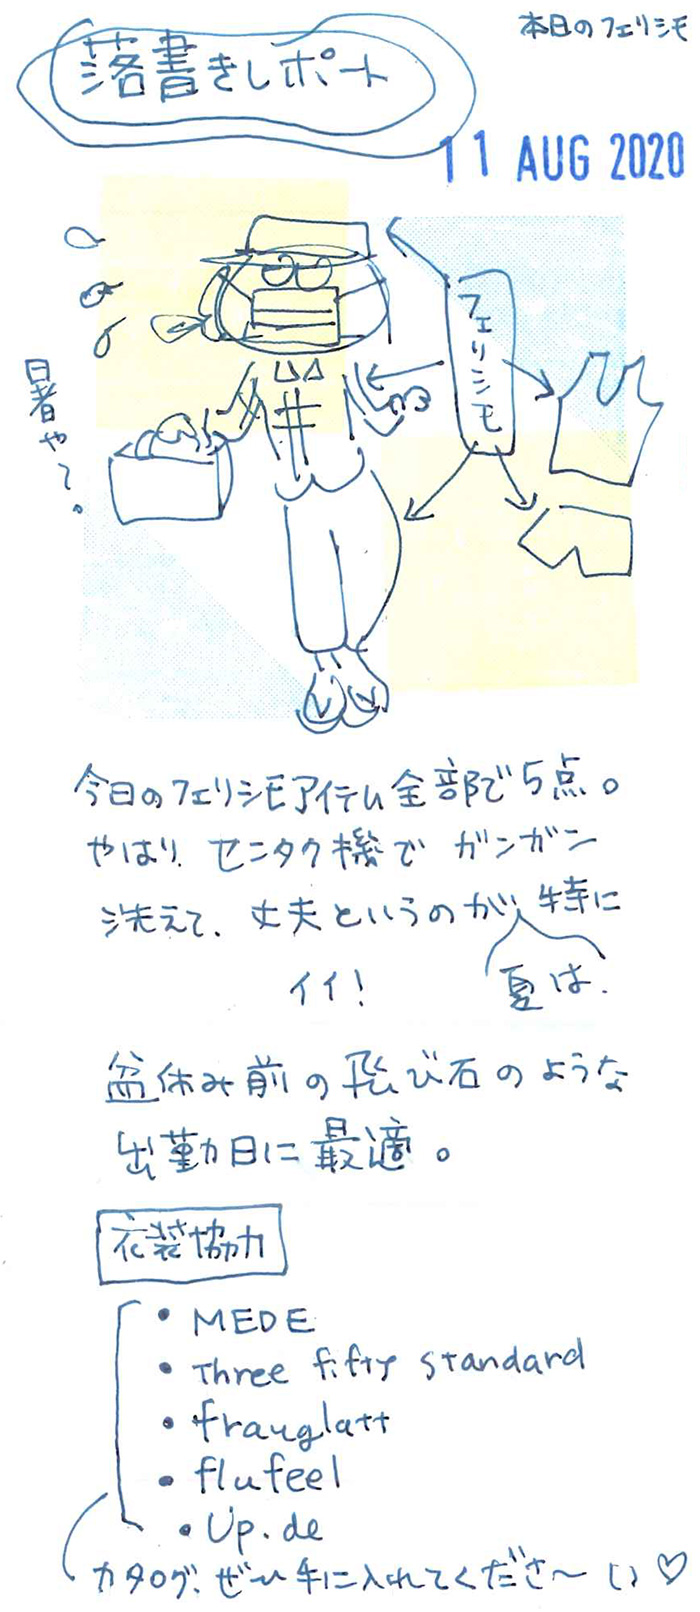 本日のフェリシモ
落書きレポート
11 AUG 2020
暑や～。
フェリシモ
今日のフェリシモアイテム全部で5点。
やはり、センタク機でガンガン
洗えて、丈夫というのが、特に
夏は、
イイ!
盆休み前の飛び石のような
出勤日に最適。
衣装協力
・MEDE
・Three fifty standard
・frauglatt
・flufeel
・Up.de
カタログ、ぜひ手に入れてくださ～い♡